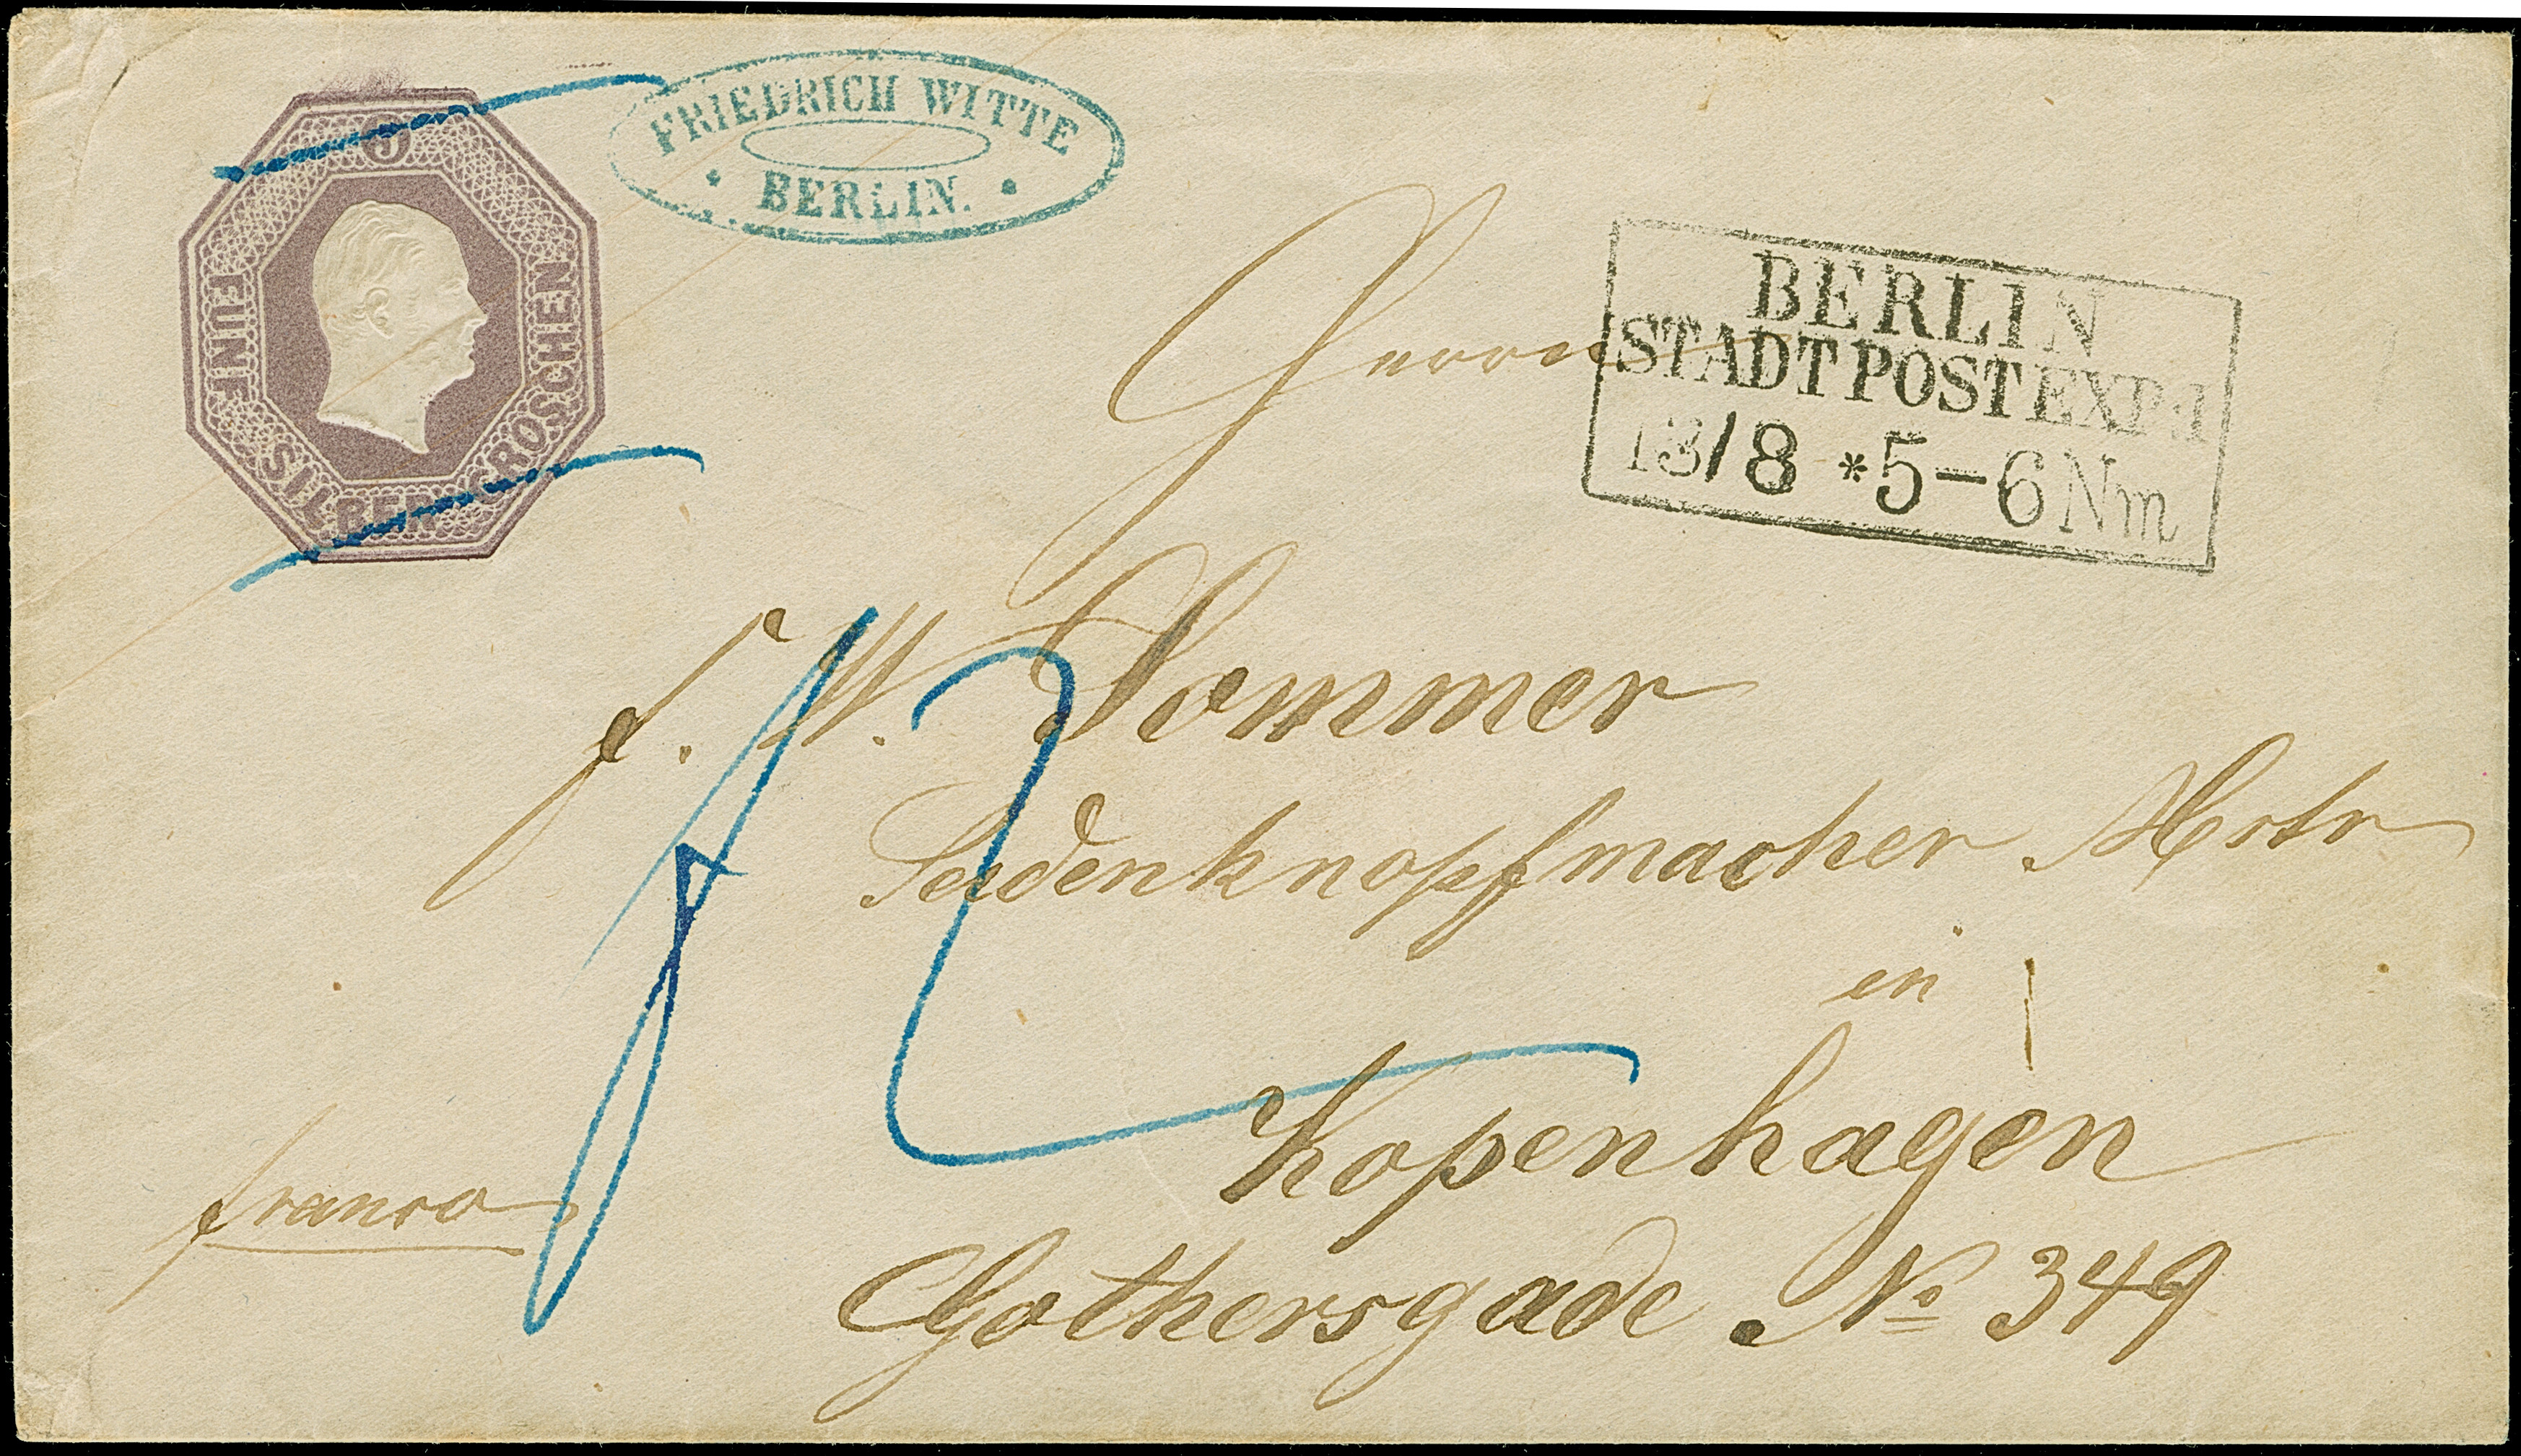 5
FÜNF SILBERGROSCHEN
FRIEDRICH WITTE
BERLIN.
BERLIN
STADTPOSTEXP:I
13/8 *5-6 Nm
Herrn
J. W. Sommer
Seidenknopfmacher Mstr
in
Kopenhagen
franco
Gothersgade No 349